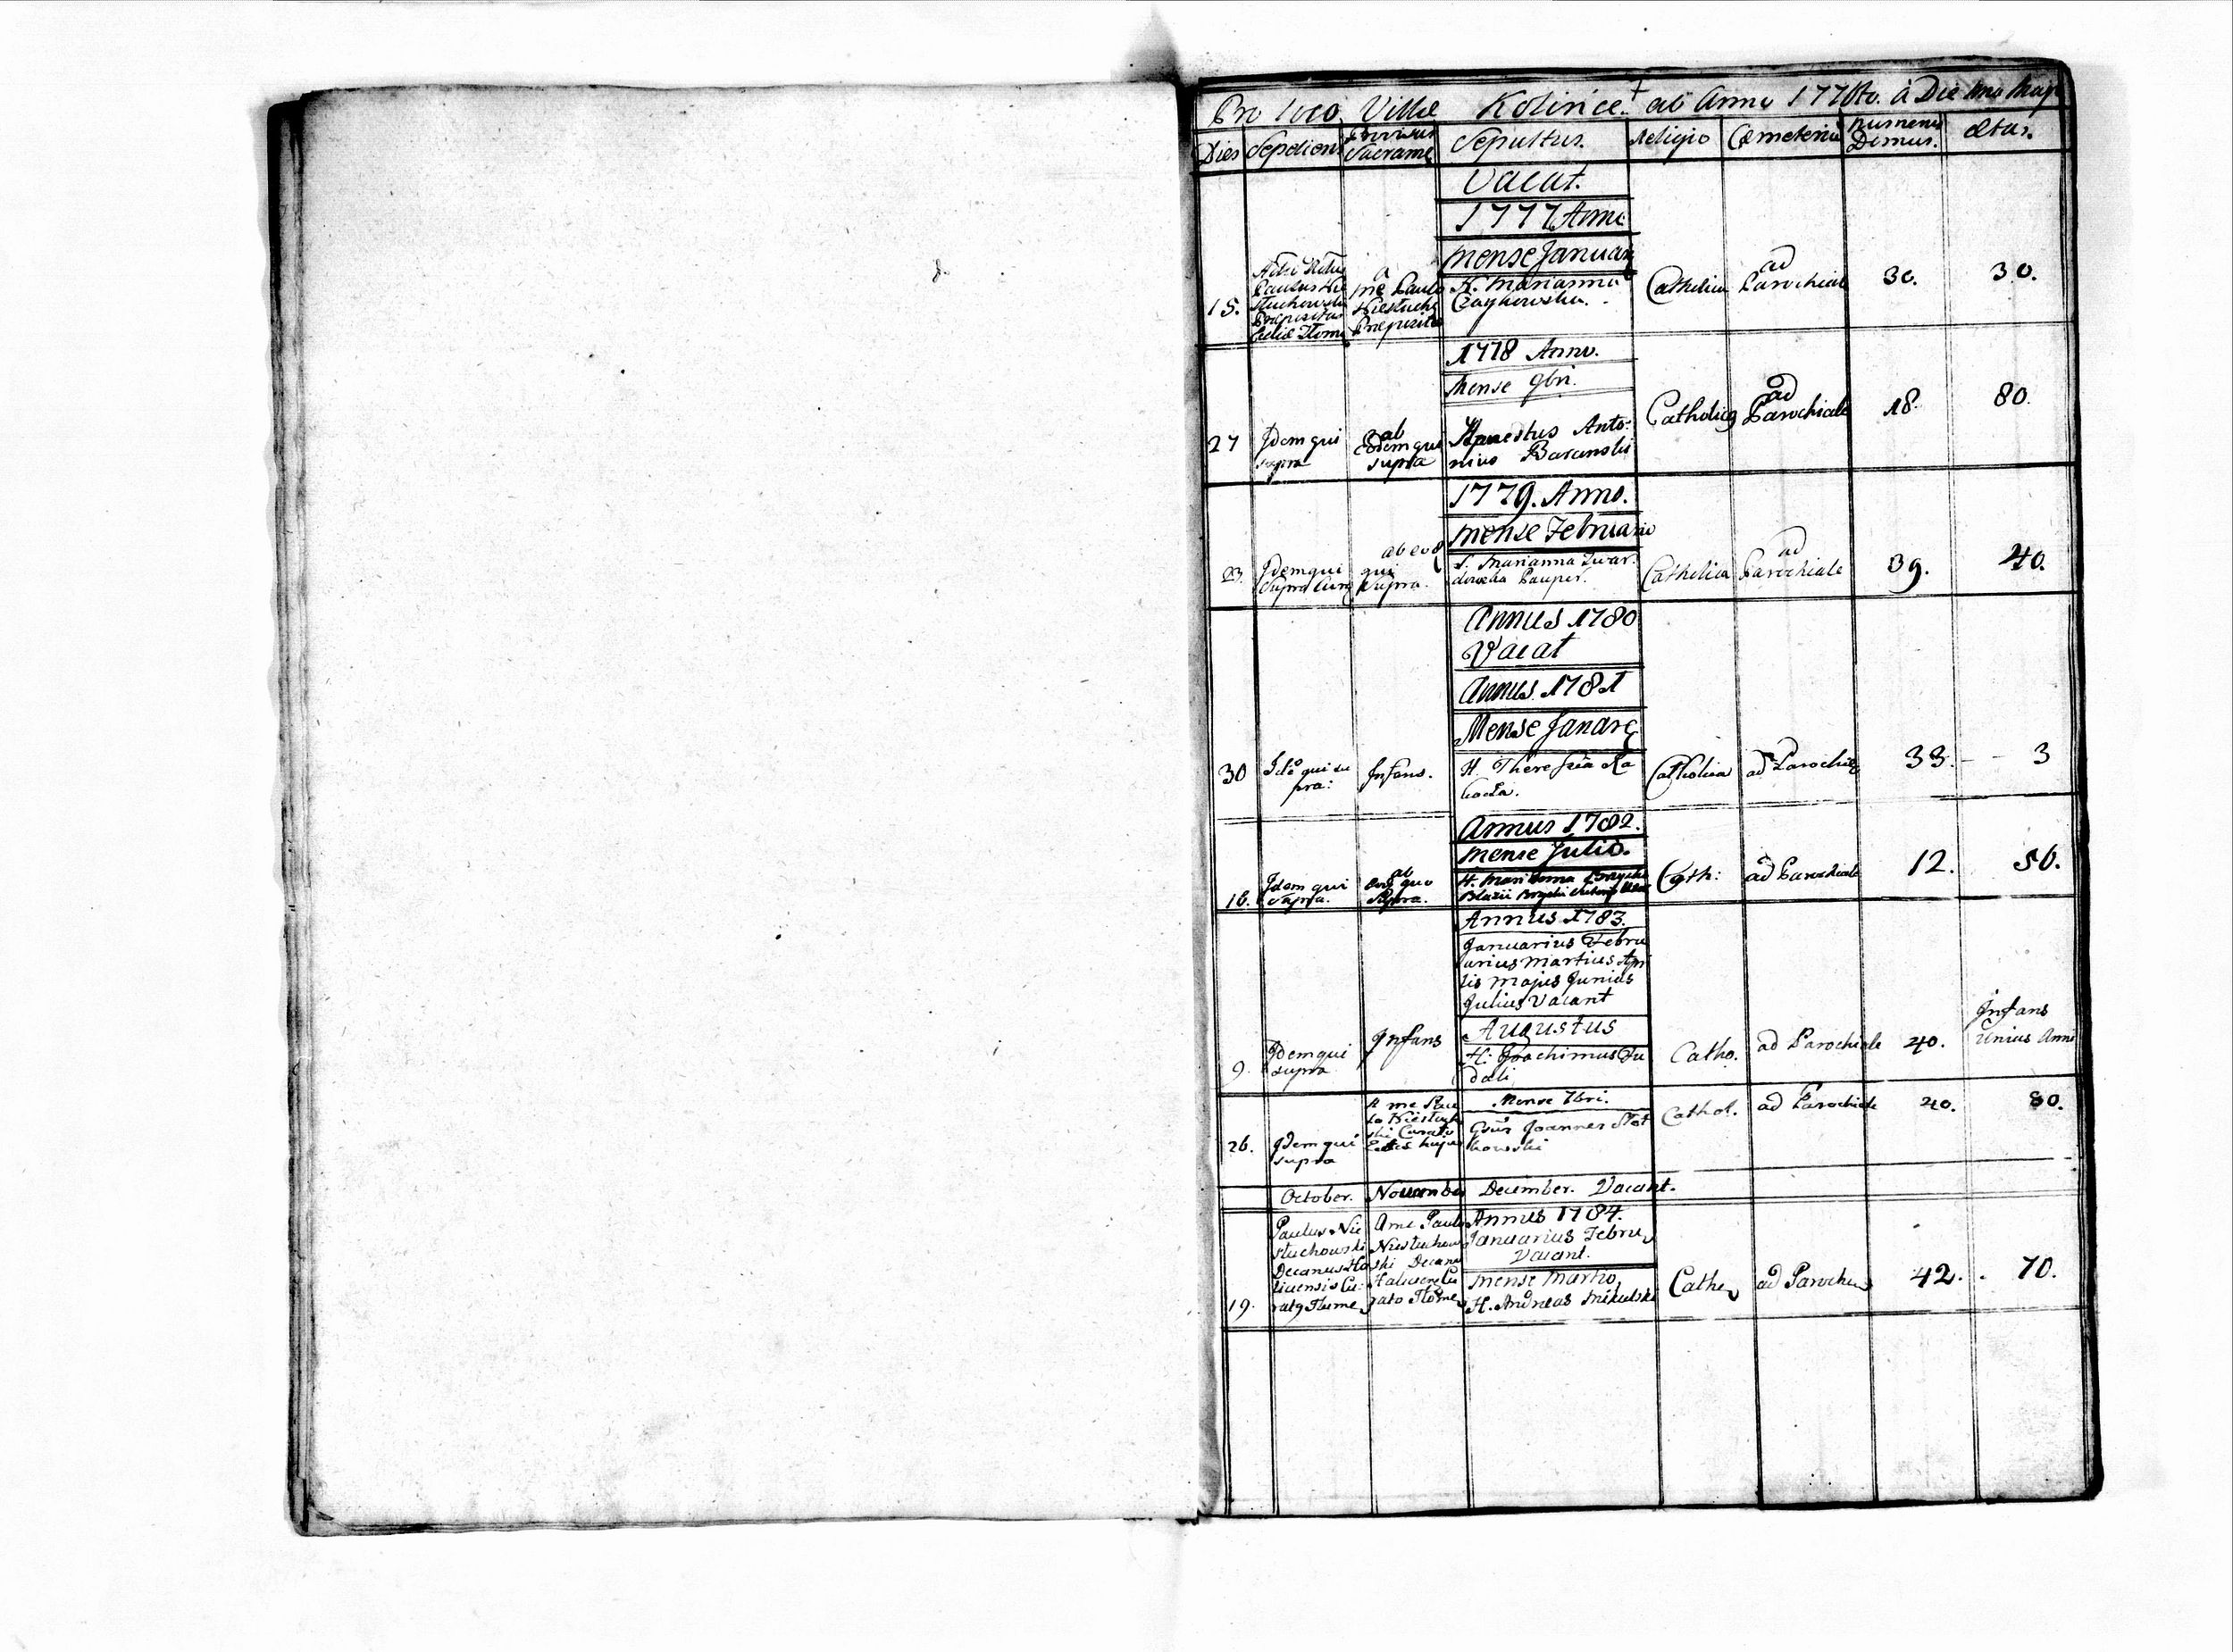 Pro loco Villae Kolince ab Anno 177 à Die
Dies Sepeliens Provisus Sacrame Sepultus. Religio Cemeteriū Numerus Domus. Ætas.
Vacat.
1777 Anno
Mense Januarij
15. Paulus Praepositus
à me Paulo Praeposito
H. Marianna
Czaykowska.
Catholica ad Parochiale 30. 30.
1778 Anno.
Mense 9bri.
27 Idem qui supra
ab eodem qui supra
Honestus Anto-
nius Baranski
Catholicg ad Parochiale 18. 80.
1779. Anno.
Mense Februario
23. Idem qui supra
ab eod qui supra.
Marianna Twar-
dowska Pauper.
Catholica ad Parochiale 39. 40.
Annus 1780
Vacat
Annus. 1781
Mense
30 Idē qui su
pra: Infans.
H. Theresia
Catholica ad 33. 3
Annus 1782.
Mense Julio.
16. Idem qui
supra.
ab eodg quo
supra.
H. Marianna
Cath: ad Parochiale 12. 56.
Annus 1783.
Januarius Febru
arius Martius Apri
lis Majus Junius
Julius Vacant
Augustus
9. Idem qui
supra Infans
H. Joachimus Du
dali
Catho. ad Parochiale 40. Infans
Unius Anni
Mense 7bri.
26. Idem qui
supra
A me Pau
lo Niestucho
ski Curato
Joannes
kowski
Cathol. ad Parochiale 40. 80.
October. November December. Vacant.
Annus 1784.
Januarius Febru
Vacant.
Mense Martio
19. Paulus Nie
stuchowski
Decanus Ha
licensis Cu-
ratg
A me Paulo
Niestuchow
ski Decano
H. Andreas Mikulski
Cathe ad 42. 70.